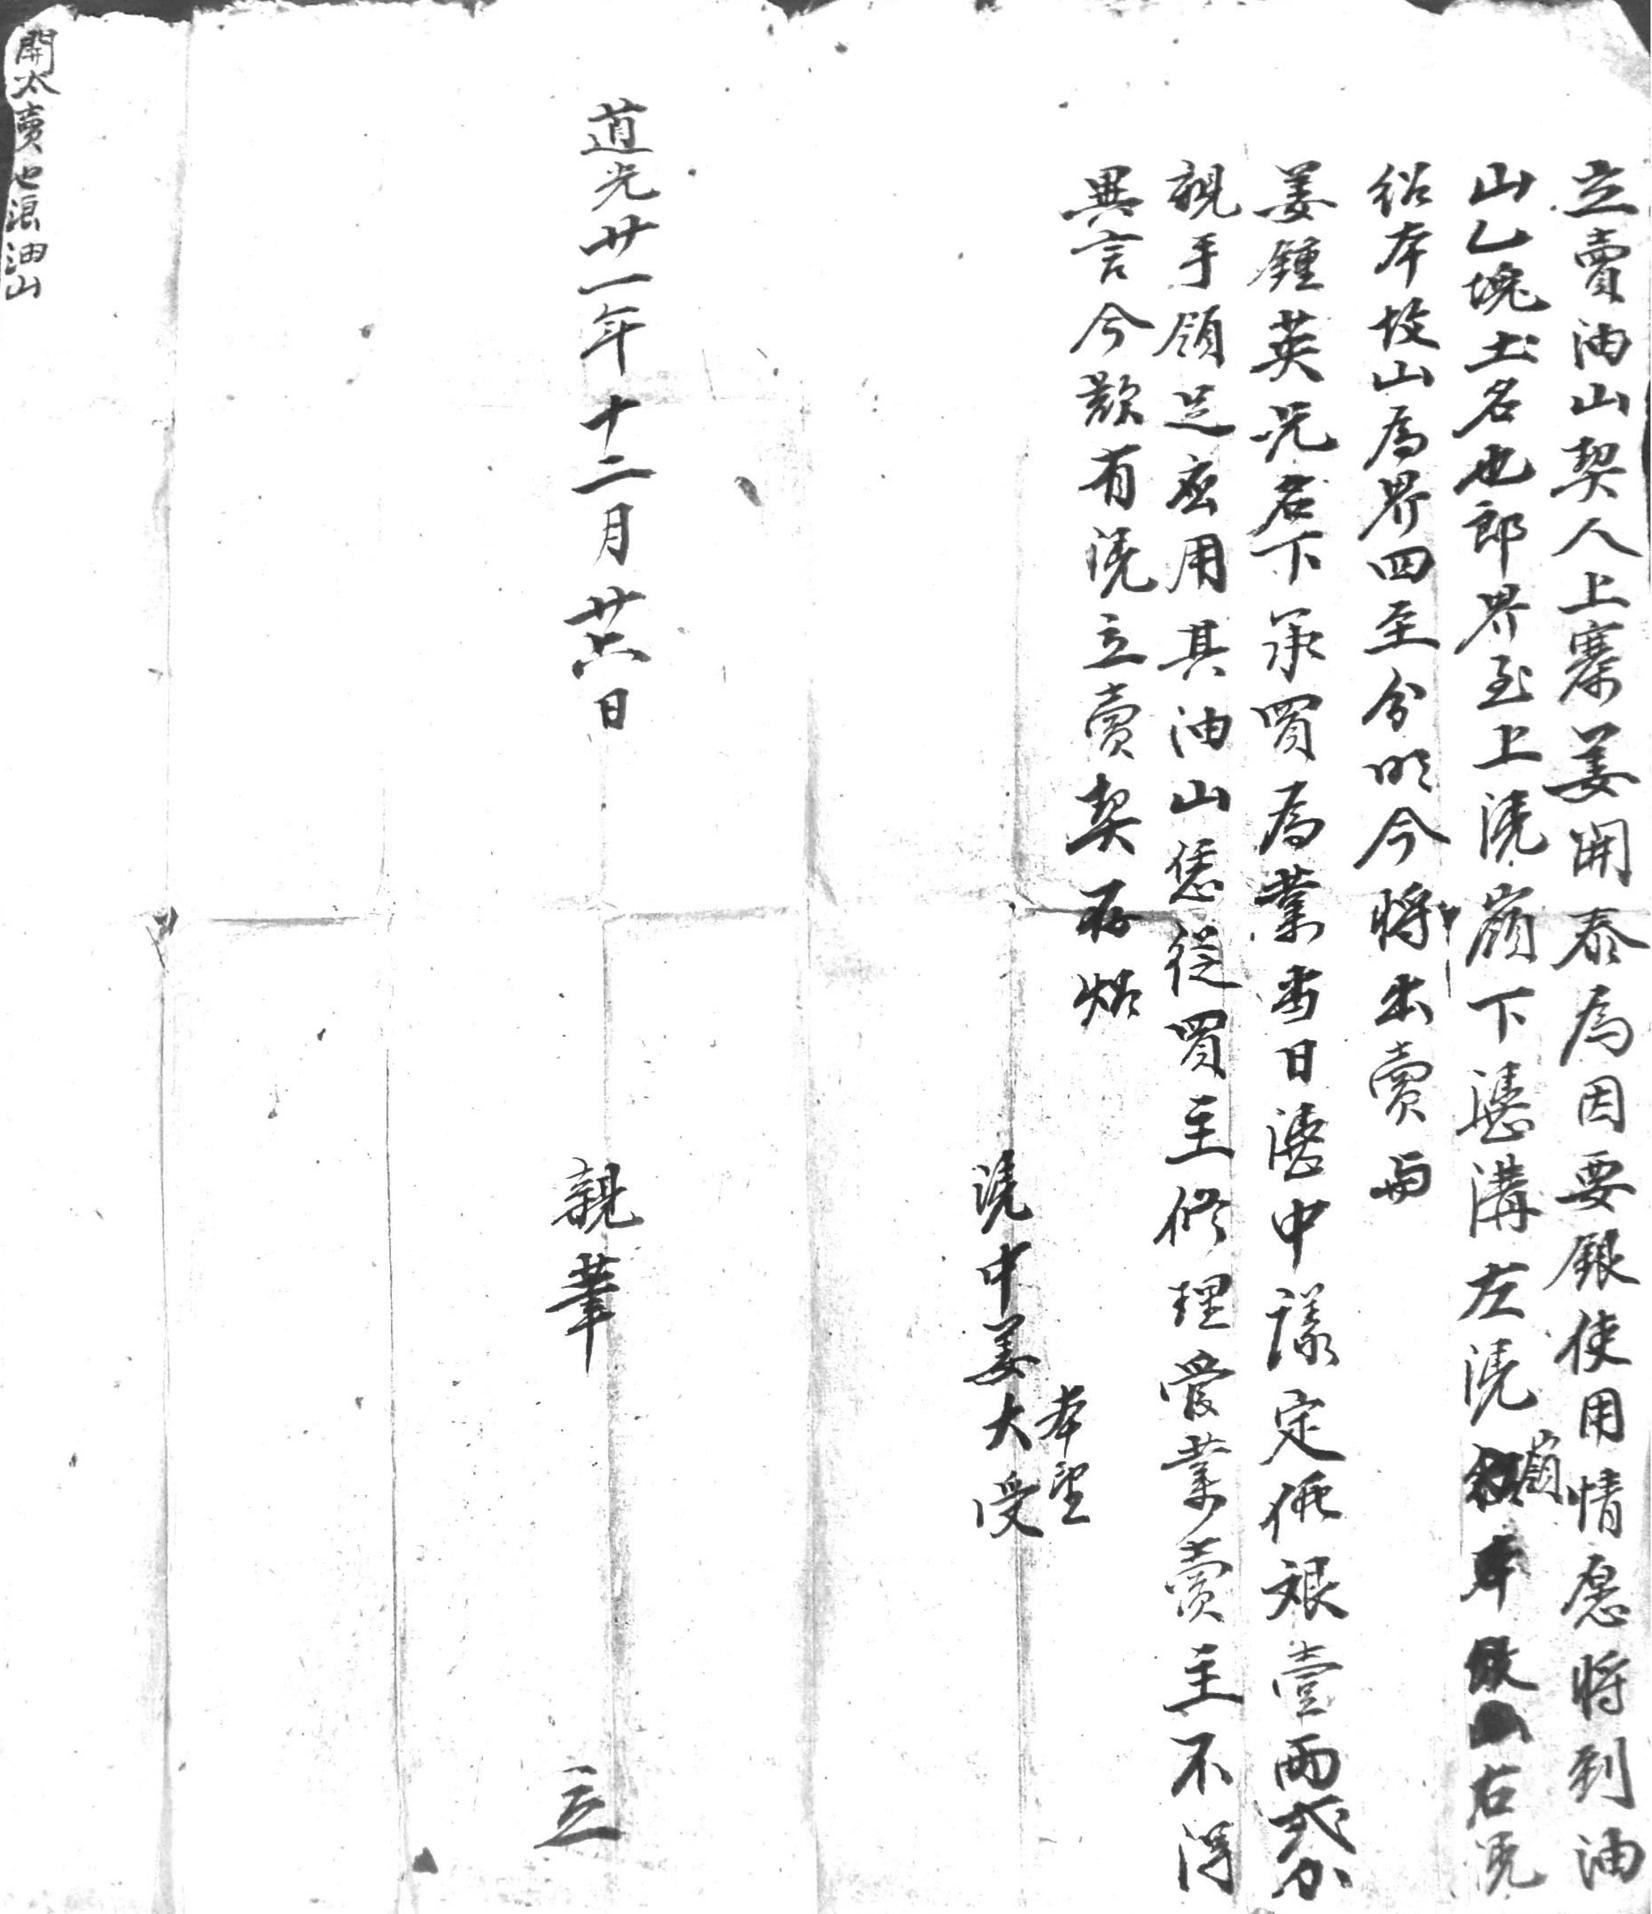 立賣油山契人上寨姜開泰為因要銀使用情愿將到油
山乚塊土名也郎界至上凴嶺下憑溝左凴嶺右凴
紹本坟山為界四至分明今將出賣与
姜鍾英兄名下承買為業當日憑中議定價艮壹兩弍分
親手領足應用其油山恁從買主修理管業賣主不得
異言今欲有凴立賣契存照
本望
凴中姜大受
道光廿一年十二月廿六日 親筆 立
開太賣也浪油山